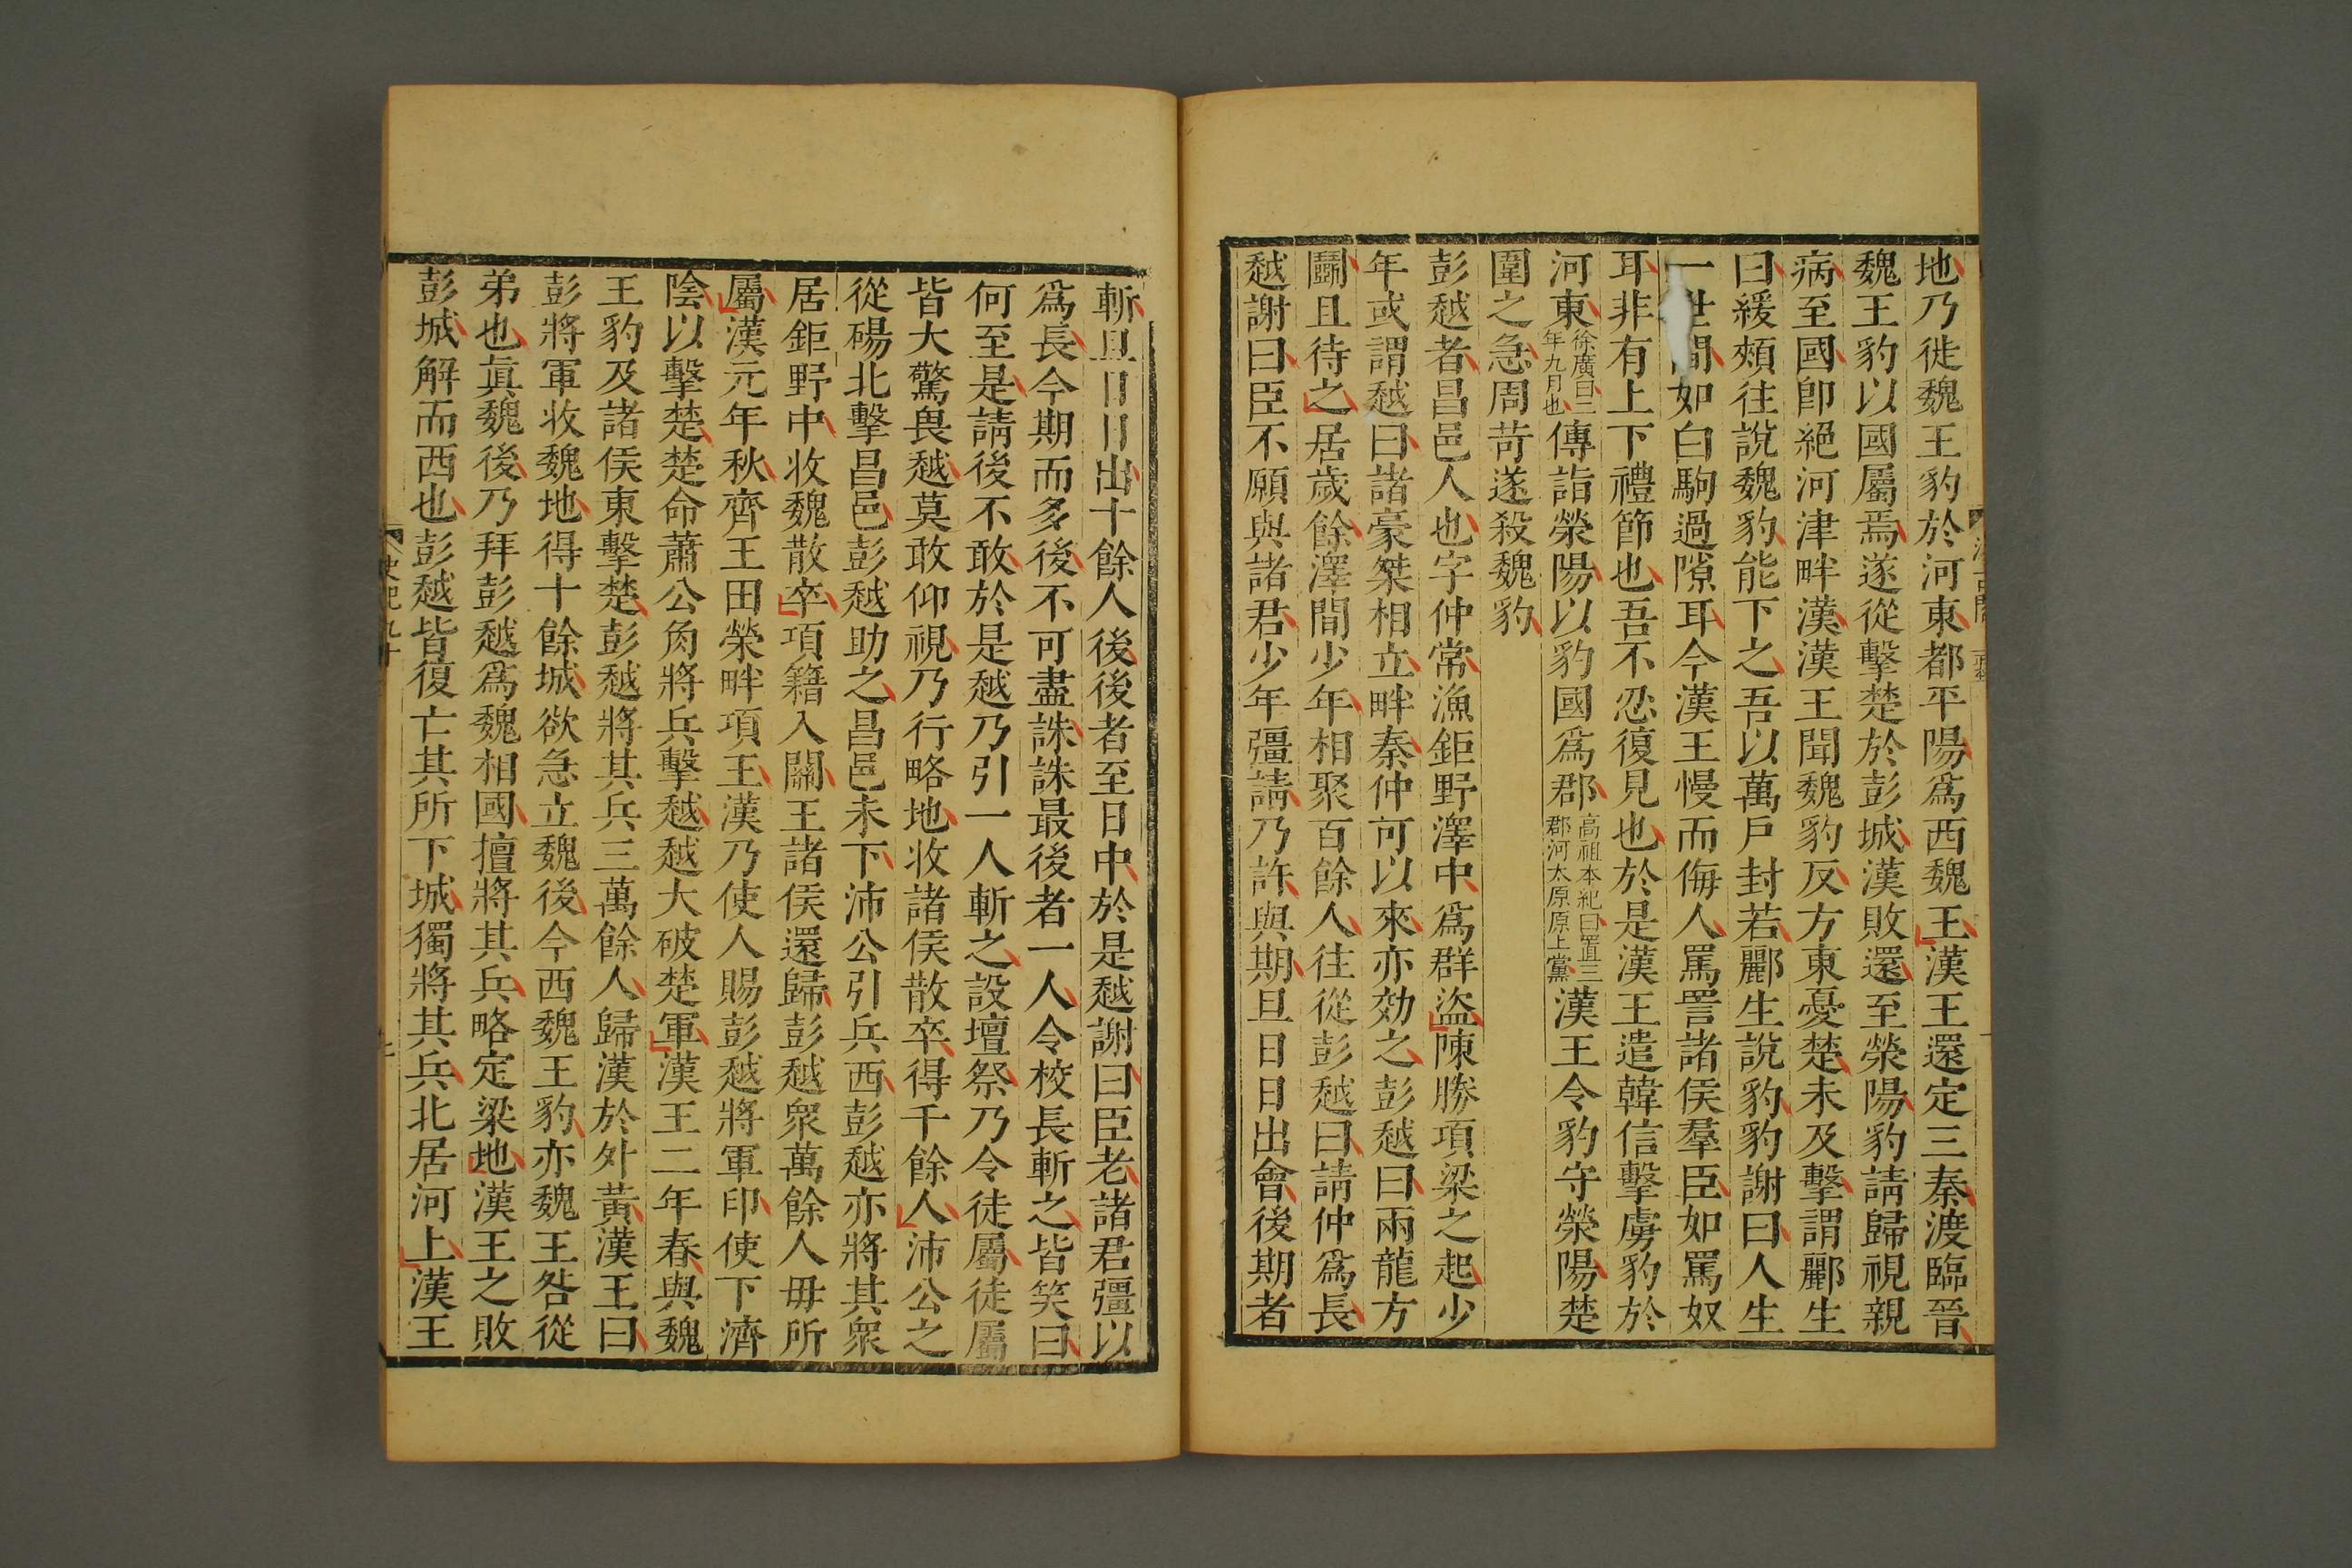 地乃徙魏王豹於河東都平陽爲西魏王漢王還定三秦渡臨晉
魏王豹以國屬焉遂從擊楚於彭城漢敗還至滎陽豹請歸視親
病至國卽絕河津畔漢漢王聞魏豹反方東憂楚未及擊謂酈生
曰緩頰往說魏豹能下之吾以萬戶封若酈生說豹豹謝曰人生
一世間如白駒過隙耳今漢王慢而侮人罵詈諸侯羣臣如罵奴
耳非有上下禮節也吾不忍復見也於是漢王遣韓信擊虜豹於
河東徐廣曰二年九月也傳詣滎陽以豹國爲郡高祖本紀曰置三郡河太原原上黨漢王令豹守滎陽楚
圍之急周苛遂殺魏豹
彭越者昌邑人也字仲常漁鉅野澤中爲群盜陳勝項梁之起少
年或謂越曰諸豪桀相立畔秦仲可以來亦効之彭越曰兩龍方
鬭且待之居歲餘澤間少年相聚百餘人往從彭越曰請仲爲長
越謝曰臣不願與諸君少年彊請乃許與期旦日日出會後期者
斬旦日日出十餘人後後者至日中於是越謝曰臣老諸君彊以
爲長今期而多後不可盡誅誅最後者一人令校長斬之皆笑曰
何至是請後不敢於是越乃引一人斬之設壇祭乃令徒屬徒屬
皆大驚畏越莫敢仰視乃行略地收諸侯散卒得千餘人沛公之
從碭北擊昌邑彭越助之昌邑未下沛公引兵西彭越亦將其衆
居鉅野中收魏散卒項籍入關王諸侯還歸彭越衆萬餘人毋所
屬漢元年秋齊王田榮畔項王漢乃使人賜彭越將軍印使下濟
陰以擊楚楚命蕭公角將兵擊越越大破楚軍漢王二年春與魏
王豹及諸侯東擊楚彭越將其兵三萬餘人歸漢於外黃漢王曰
彭將軍收魏地得十餘城欲急立魏後今西魏王豹亦魏王咎從
弟也眞魏後乃拜彭越爲魏相國擅將其兵略定梁地漢王之敗
彭城解而西也彭越皆復亡其所下城獨將其兵北居河上漢王
史記九十